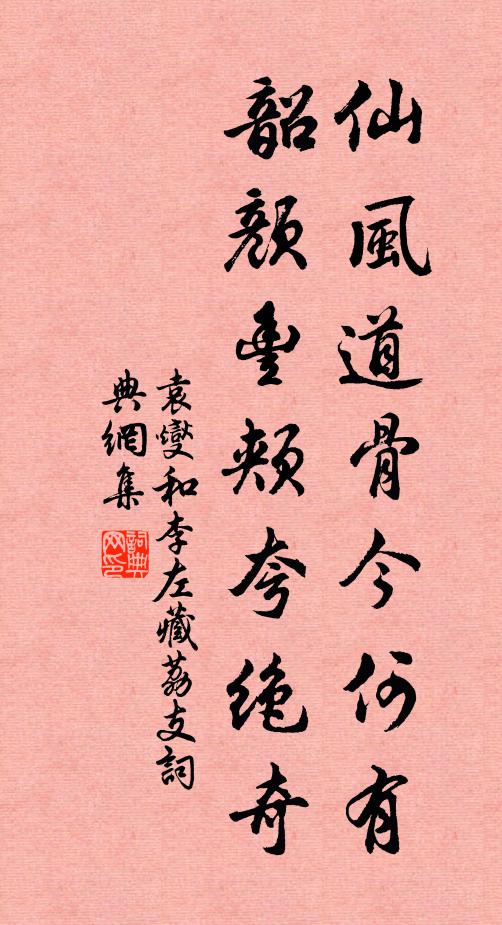 仙風道骨今何有
韶顏豐頰夸絕奇
袁燮和李左藏荔支詞
典網集
詞典網印